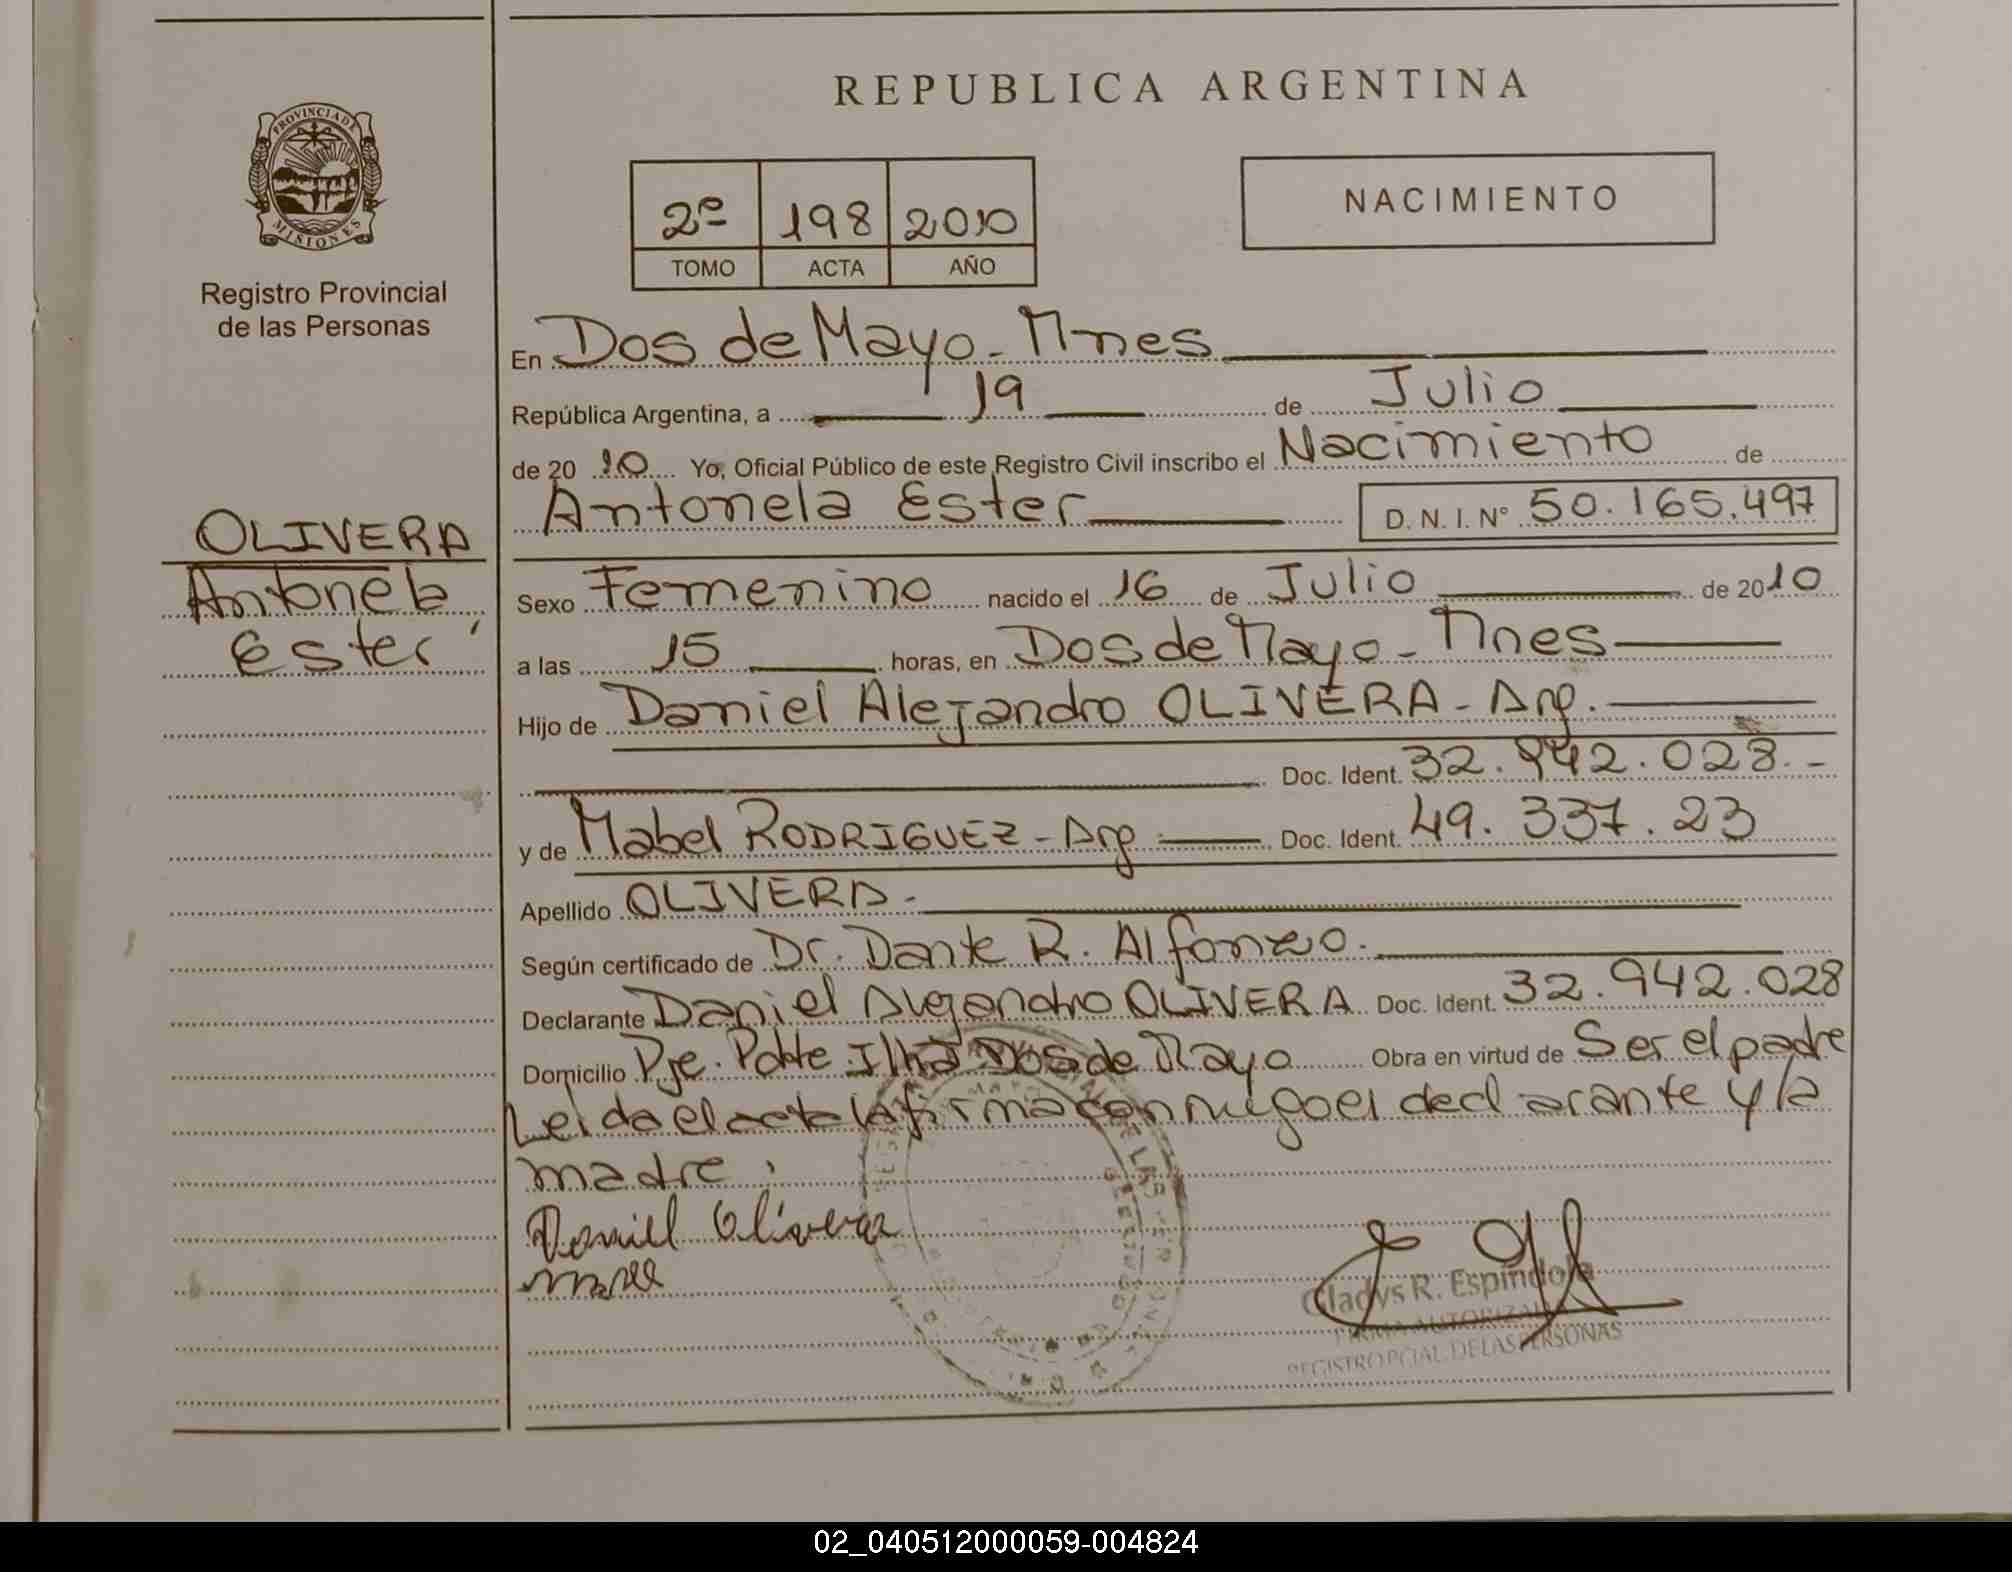 REPUBLICA ARGENTINA
PROVINCIA DE
MISIONES
Registro Provincial
de las Personas
2º 198 2010
TOMO ACTA AÑO
NACIMIENTO
En Dos de Mayo - Mnes
República Argentina, a 19 de Julio
de 20 10 Yo, Oficial Público de este Registro Civil inscribo el Nacimiento de
Antonela Ester D. N. I. Nº 50.165.497
OLIVERA
Antonela
Ester
Sexo Femenino nacido el 16 de Julio de 2010
a las 15 horas, en Dos de Mayo - Mnes
Hijo de Daniel Alejandro OLIVERA - Arg.
Doc. Ident. 32.942.028.-
y de Mabel RODRIGUEZ - Arg. Doc. Ident. 49.337.23
Apellido OLIVERA.-
Según certificado de Dr. Dante R. Alfonzo.
Declarante Daniel Alejandro OLIVERA Doc. Ident. 32.942.028
Domicilio Pje. Pdte Illia Dos de Mayo Obra en virtud de Ser el padre
Leida el acta la firma conmigo el declarante y la
madre.
Daniel Olivera
Gladys R. Espindola
FIRMA AUTORIZADA
REGISTRO PCIAL. DE LAS PERSONAS
02_040512000059-004824